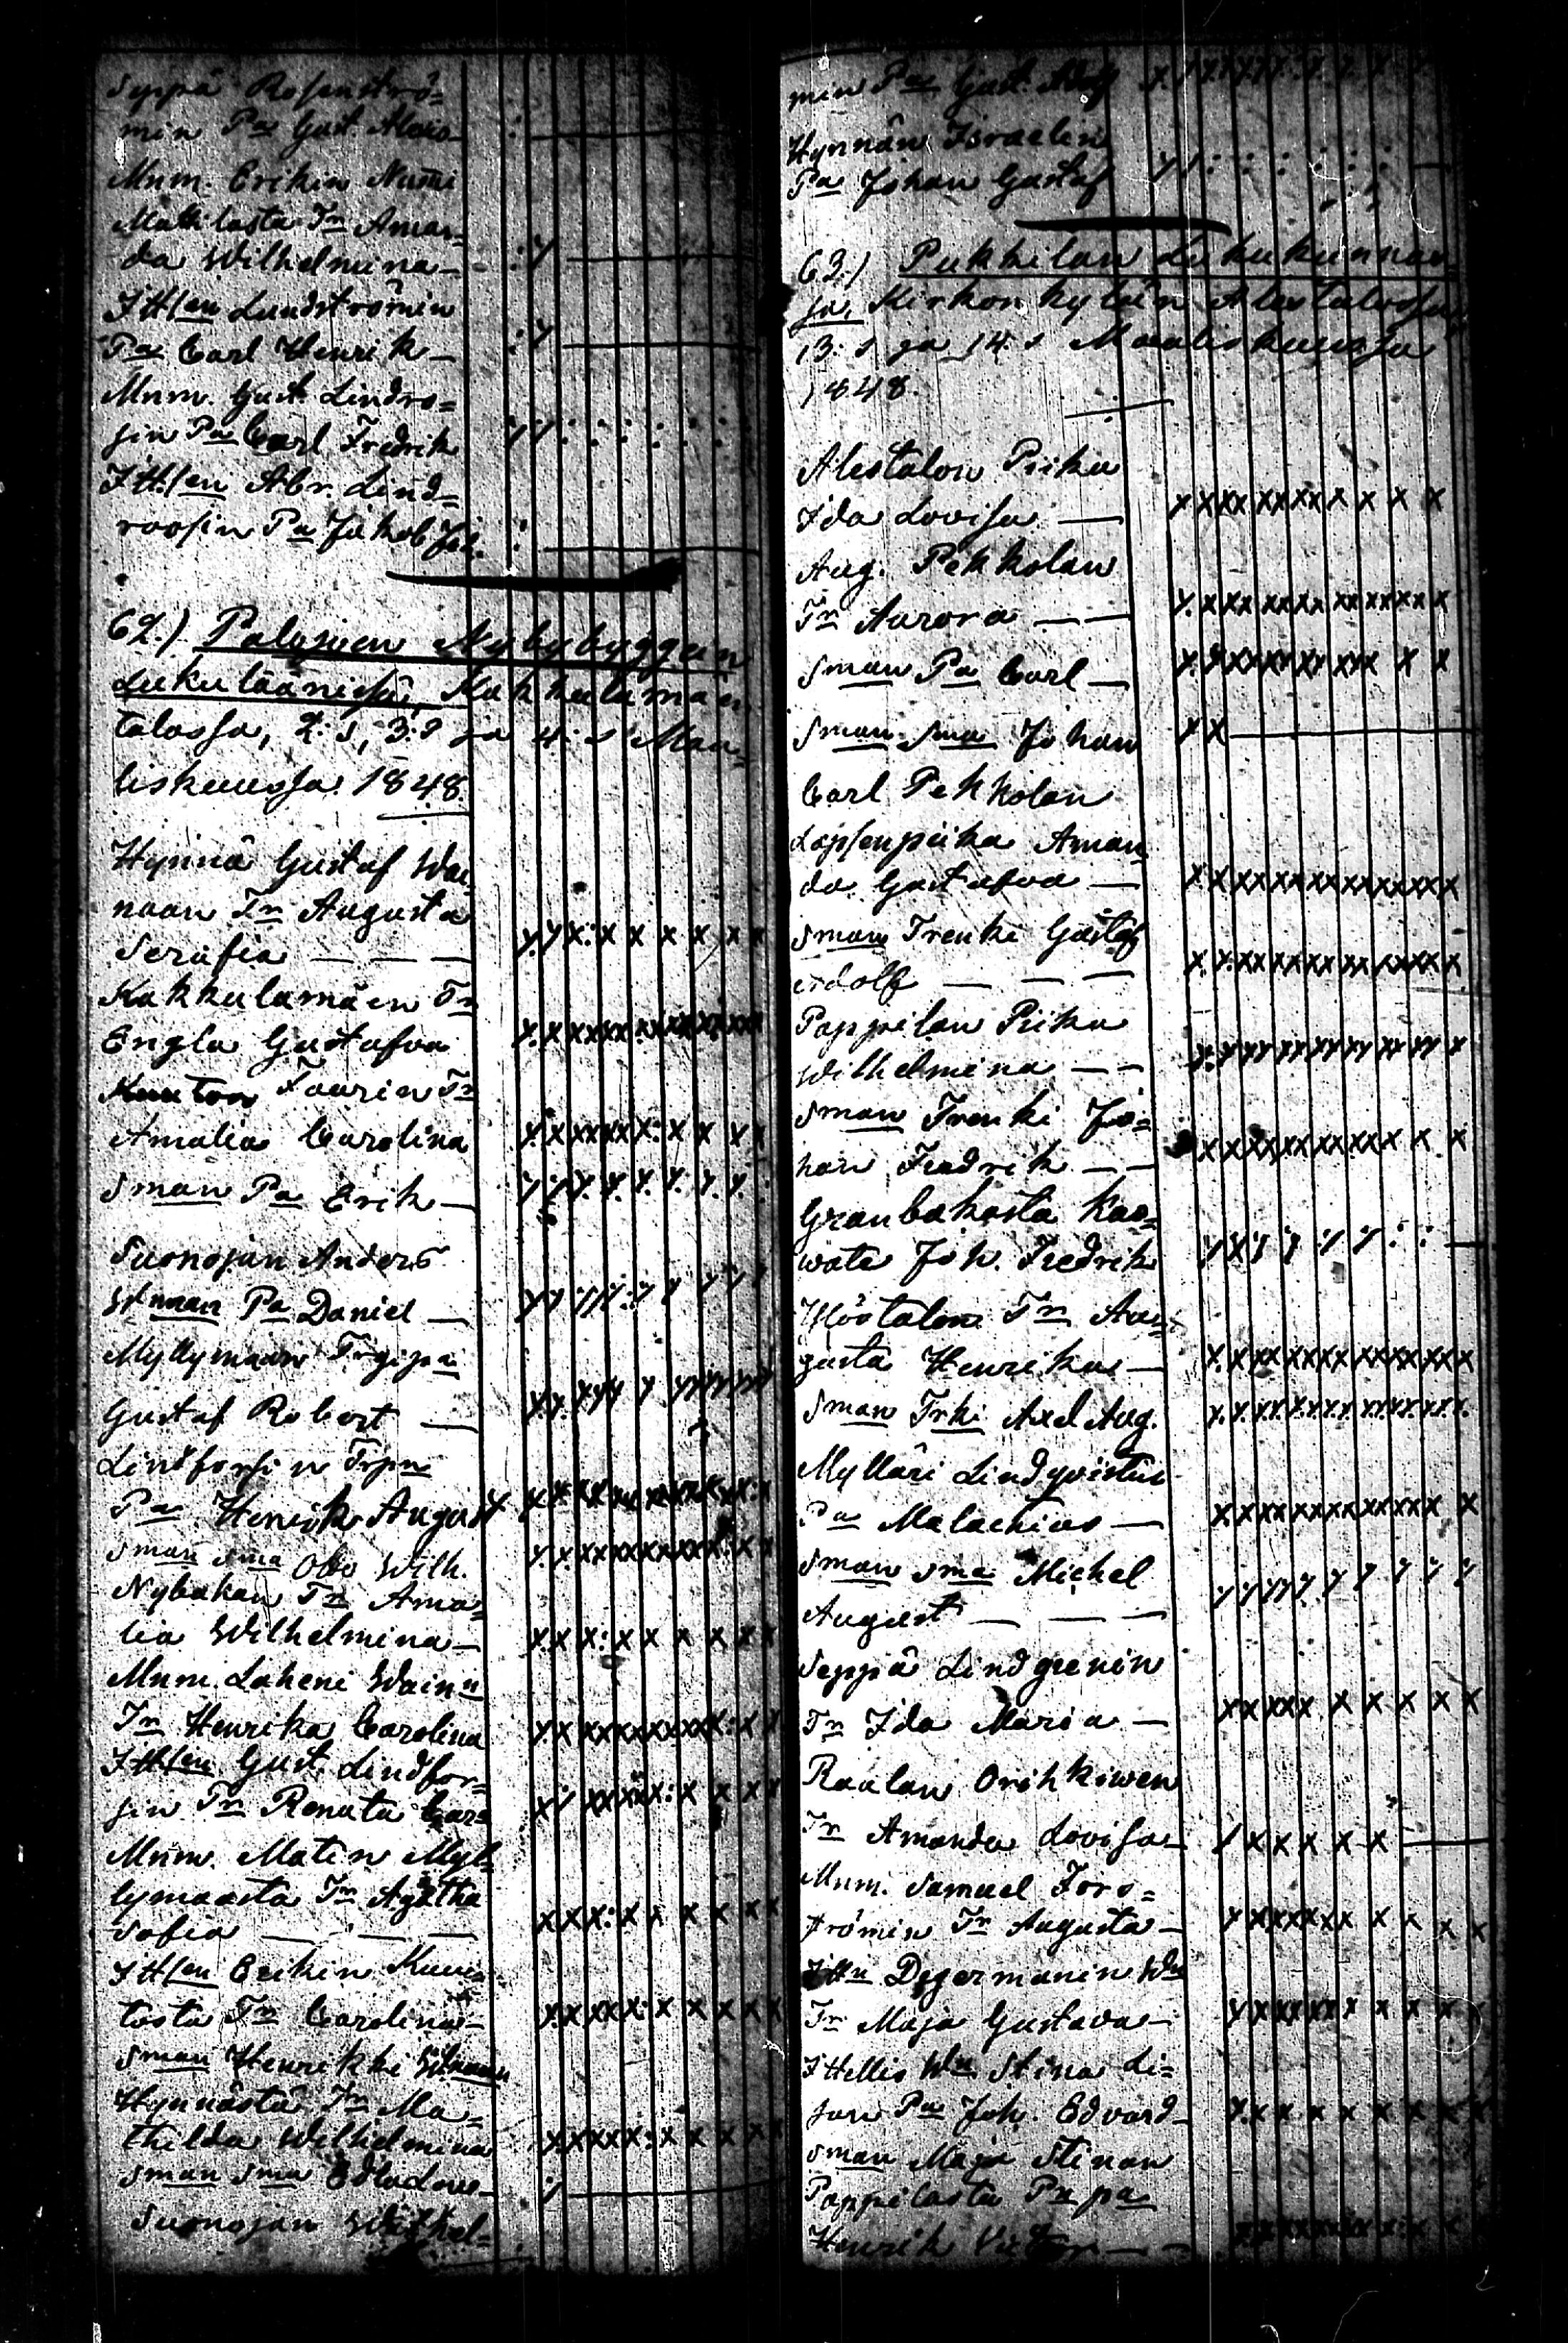 Seppä Rosenströ-
min Pa Gust. Alexis
Mnm. Erikin Nummi
Mattilasta Tr Aman-
da Wilhelmina —
Itllsen Lundströmin
Pa Carl Henrik —
Mnm. Gust. Lindro=
sin Pa Carl Fredrik
Itllsen Abr. Lind=
roosin Pa Jakob Joh.
62.) Palojoen Nybybyggein
Lukuläänissä, Kakkulamäen
talossa, 2:s, 3:s ja 4:s Maa-
liskuussa 1848.
Hynnä Gustaf Wai-
naan Tr Augusta
Serafia — — —
Kakkulamäen Tr
Engla Gustafva
Tourin Tr
Amalia Carolina
Sman Pa Erik —
Suonojan Anders
Wnaan Pa Daniel —
Myllymaan
Gustaf Robert —
Lindforsin
Pa Henrik August
Sman sma Otto Wilh.
Nybakan Tr Ama=
lia Wilhelmina —
Mnm. Laheni Wainn
Tr Henrika Carolina
Itllsen Gust. Lindfor=
sin Tr Renata Caro
Mnm. Matin Myl=
lymaasta Tr Agatha
Sofia — — —
Itllsen Erikin Kuu=
tosta Tr Carolina —
Sman Henrikki Wnaan
Hynnästä Tr Ma=
thilda Wilhelmina
Sman sma Edla Lov. —
Suonojan Wilhel=
min Pa Gust. Adolf
Hynnän Israelin
Pa Johan Gustaf
63.) Pukkilan Lukukunnas-
sa, Kirkonkylän Alestalossa,
13:s ja 14:s Maaliskuussa
1848.
Alestalon Piika
Ida Lovisa —
Aug. Pekkolan
Tr Aurora — —
Sman Pa Carl —
Sman sma Johan
Carl Pekkolan
Lapsenpiika Aman-
da Gustafva —
Sman Trenki Gustaf
Adolf — — —
Pappilan Piika
Wilhelmina — —
Sman Trenki Jo=
han Fredrik — —
Granbakasta Kas=
wate Joh. Fredrik
Ylöstalon Tr Au=
gusta Henrika —
Sman Trki Axel Aug.
Mylläri Lindqvistin
Pa Malachias —
Sman sma Michel
August — — —
Seppä Lindgrenin
Tr Ida Maria —
Raalan Orihkiwen
Tr Amanda Lovisa
Mnm. Samuel Fors=
trömin Tr Augusta —
Itlln Degermanin Wn
Tr Maja Gustava —
Itllis Wn Stina Li=
san Pa Joh. Edvard —
Sman Maja Stinan
Pappilasta Pn pa
Henrik Victor — —